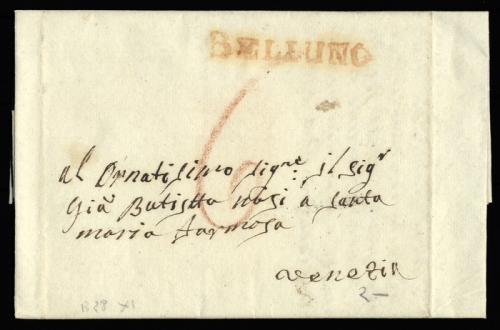 BELLUNO
6
al Ornatisimo sigre. il sigr
Gia Batista nasi a santa
maria farmosa
venezia
2-
B28 XI